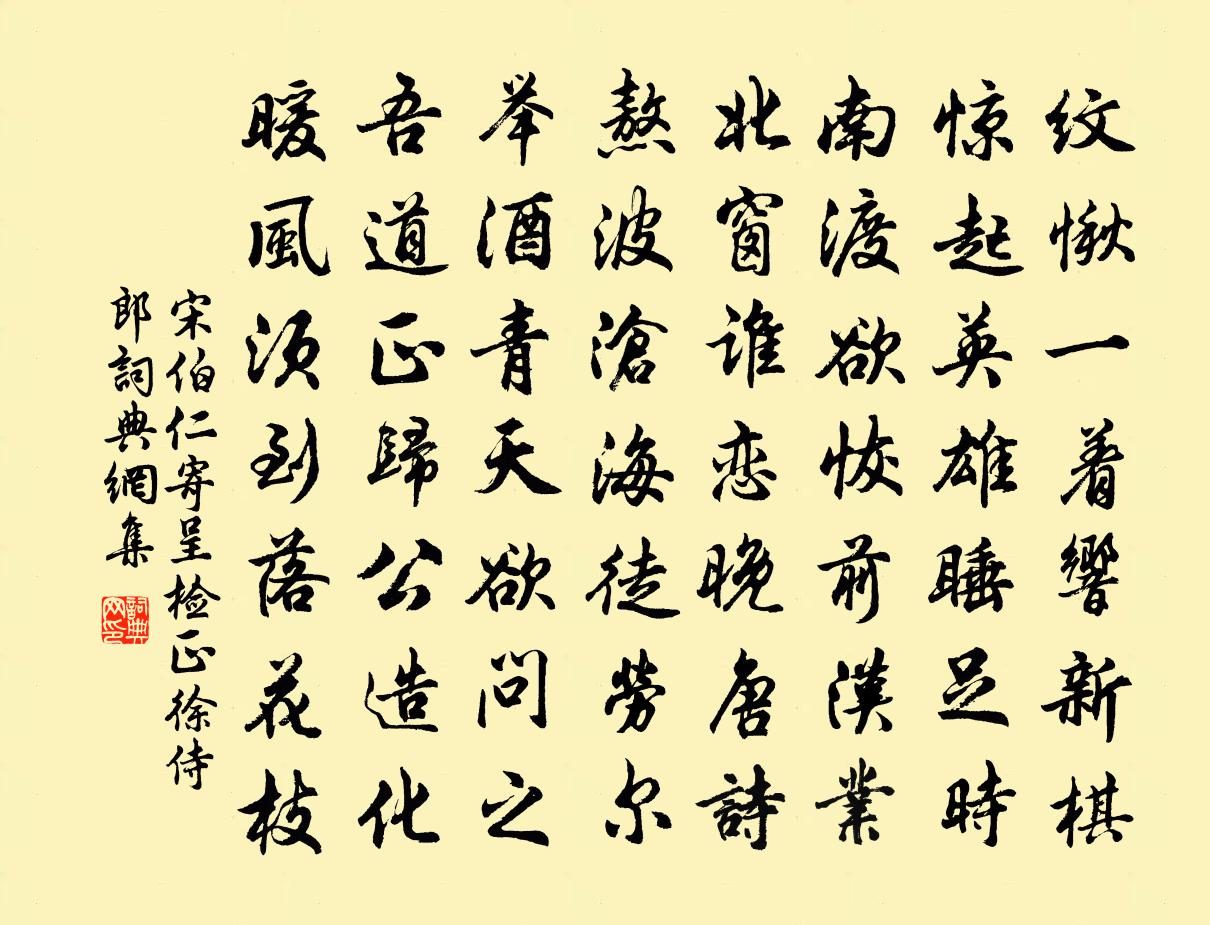 纹愀一着響新棋
惊起英雄睡足時
南渡欲恢前漢業
北窗誰恋晚唐詩
熬波滄海徒勞尔
举酒青天欲问之
吾道正歸公造化
暖風须到落花枝
宋伯仁寄呈检正徐侍
郎詞典網集
詞典网印